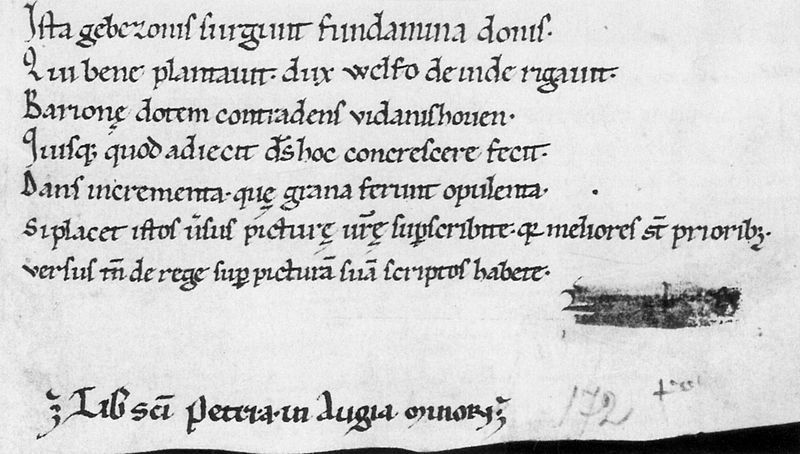 Ista gebezonis surgunt fundamina donis.
Qui bene plantauit. dux welfo deinde rigauit.
Barionę dotem contradens vidanishouen.
Quisq; quod adiecit d̄s hoc concrescere fecit.
Dans incrementa. quę grana ferunt opulenta.
Si placet istos ūsus picturę ur̄ę suꝑscribite. qr meliores st̄ priorib;.
versus tn̄ de rege suꝑ picturā suā scriptos habete.
Lib sc̄i Petri a. in Augia minori
172